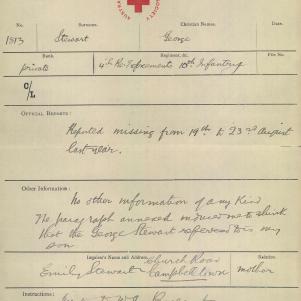 SOCIETY
No.
Surname.
Christian Names.
Date.
1813
Stewart
George
Rank.
Regiment, &c.
File No.
private
4th Reinforcements 10th Infantry
C/L
OFFICIAL REPORTS:
Reported missing from 19th to 23rd August
last year.
Other Information:
No other information of any kind
The paragraph annexed induced me to think
that the George Stewart referred to is my
son
Inquirer's Name and Address.
Relation.
Emily Stewart Church Road
Campbelltown
mother
INSTRUCTIONS: